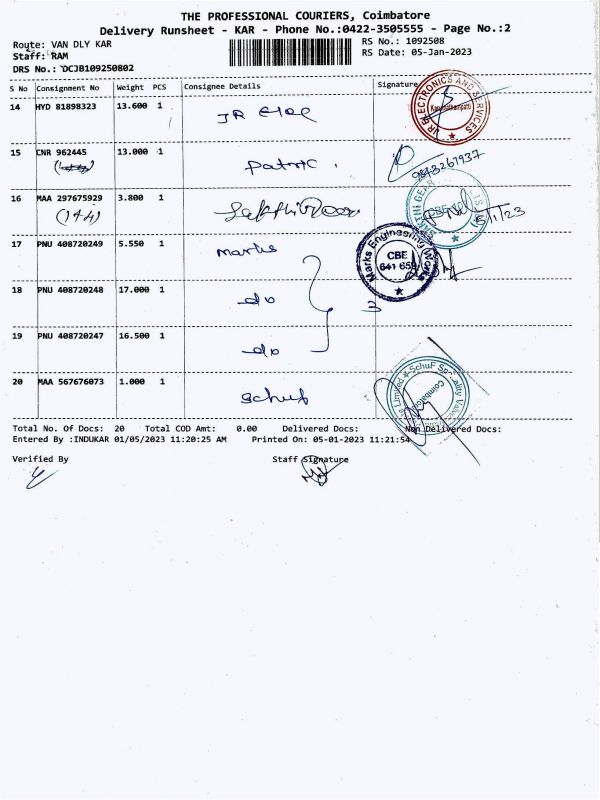 THE PROFESSIONAL COURIERS, Coimbatore
Delivery Runsheet - KAR - Phone No.:0422-3505555 - Page No.:2
Route: VAN DLY KAR
RS No.: 1092508
Staff: RAM
RS Date: 05-Jan-2023
DRS No.: DCJB109250802
S No Consignment No Weight PCS Consignee Details Signature
14 HYD 81898323 13.600 1 JR Elec
JR ELECTRONICS AND SERVICES
15 CNR 962445 13.000 1 Patric.
9843261937
16 MAA 297675929 3.800 1
(144)
5/1/23
17 PNU 408720249 5.550 1 marks
Marks Engineering Works
CBE
641 659
18 PNU 408720248 17.000 1 do 3
19 PNU 408720247 16.500 1 do
20 MAA 567676073 1.000 1 Schuf
SchuF Speciality Valves
Limited
Coimbatore
Total No. Of Docs: 20 Total COD Amt: 0.00 Delivered Docs: Non Delivered Docs:
Entered By :INDUKAR 01/05/2023 11:20:25 AM Printed On: 05-01-2023 11:21:54
Verified By Staff Signature